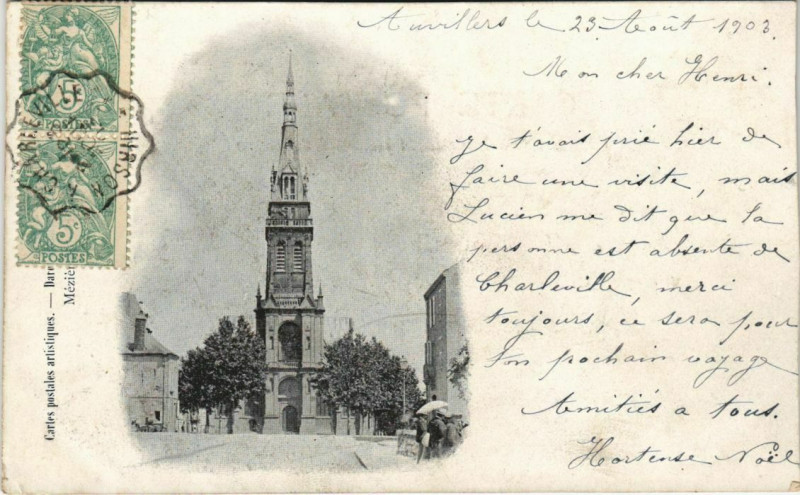 Auvillers le 23 Août 1903.
Mon cher Henri.
Je t'avais prié hier de
faire une visite, mais
Lucien me dit que la
personne est absente de
Charleville, merci
toujours, ce sera pour
ton prochain voyage
Amitiés a tous.
Hortense Noël
5c
POSTES
5c
POSTES
Cartes postales artistiques. — Dare
Mézièr